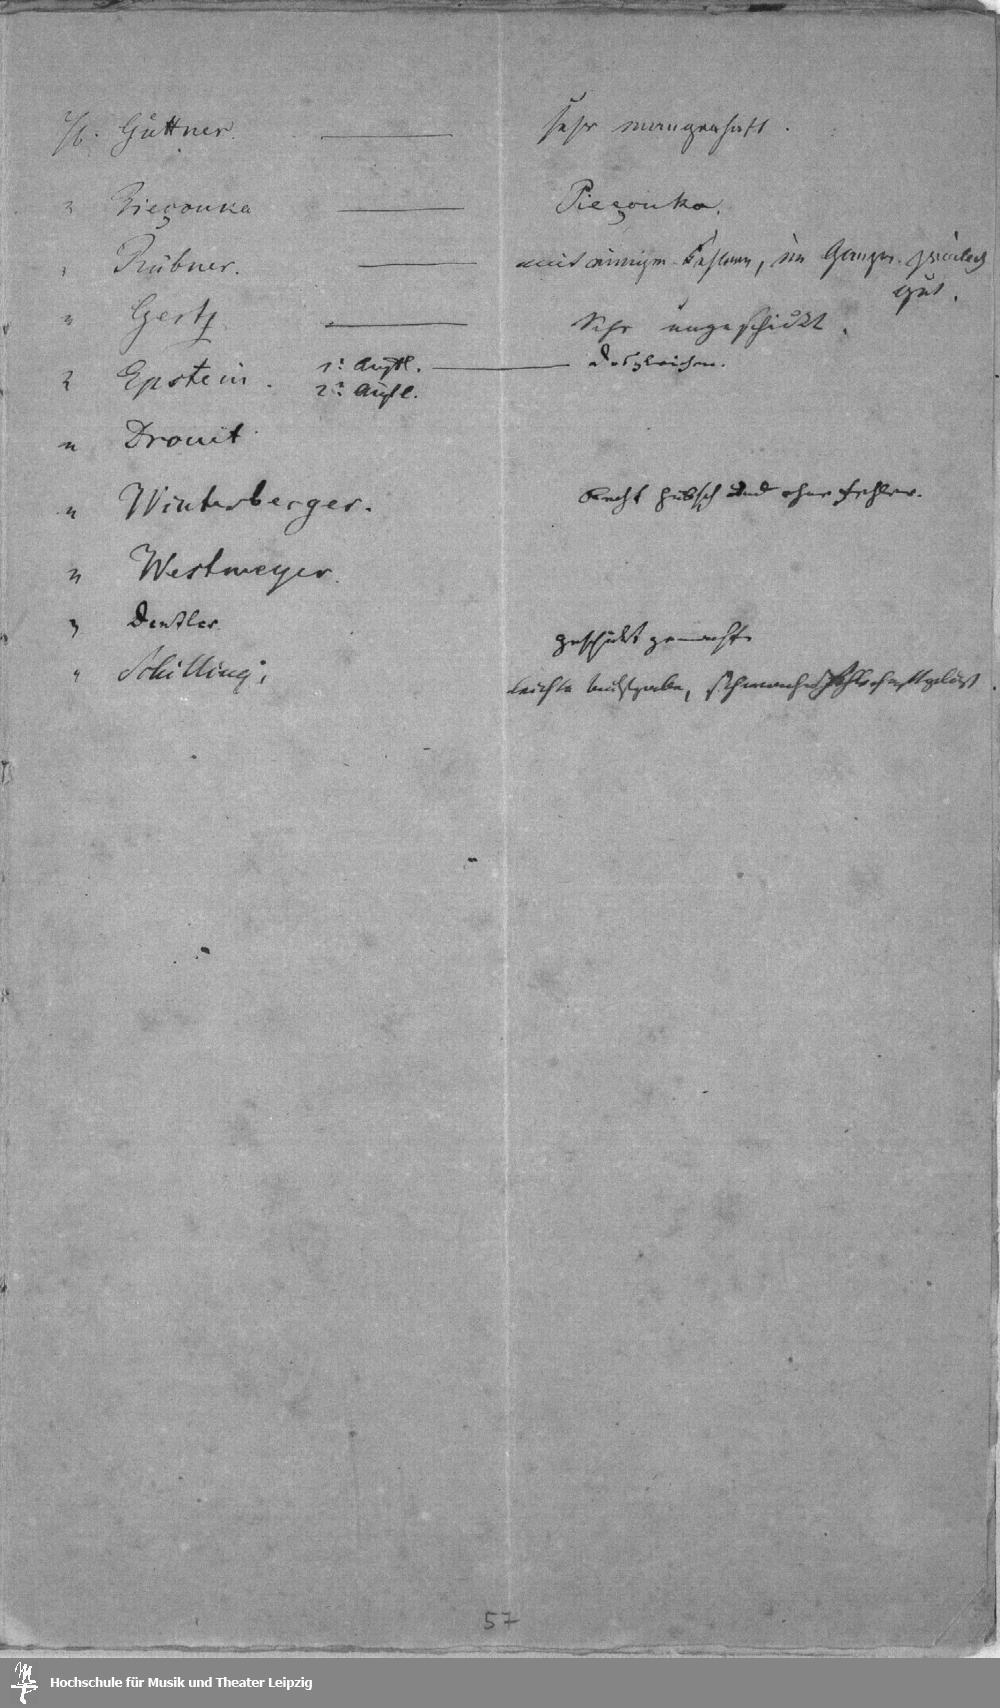 Hr. Güttner. sehr mangelhaft.
" Pieçonka Pieçonka.
" Rübner. mit einigen Fehlern, im Ganzen ziemlich
gut.
" Gertz Sehr ungeschickt.
" Epstein. 1r Aufl. Desgleichen.
2r Aufl.
" Drouit
" Winterberger. Recht hübsch und ohne Fehler.
" Westmeyer.
" Dentler geschickt gemacht.
" Schilling; leichte Aufgabe,
57
Hochschule für Musik und Theater Leipzig